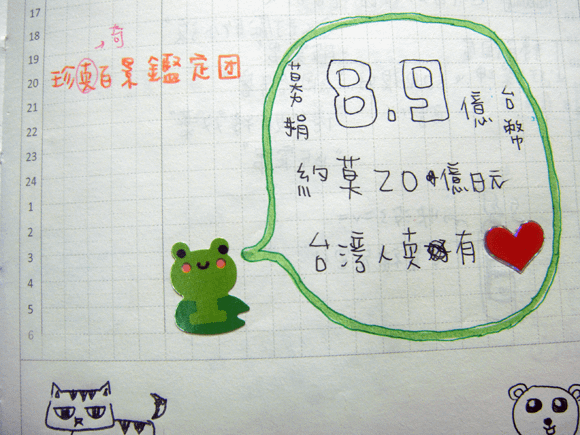 17
18
19
20
21
22
23
24
1
2
3
4
5
6
奇
珍真百景鑑定団
募捐 8.9 億 台幣
約莫20億日元
台灣人真有